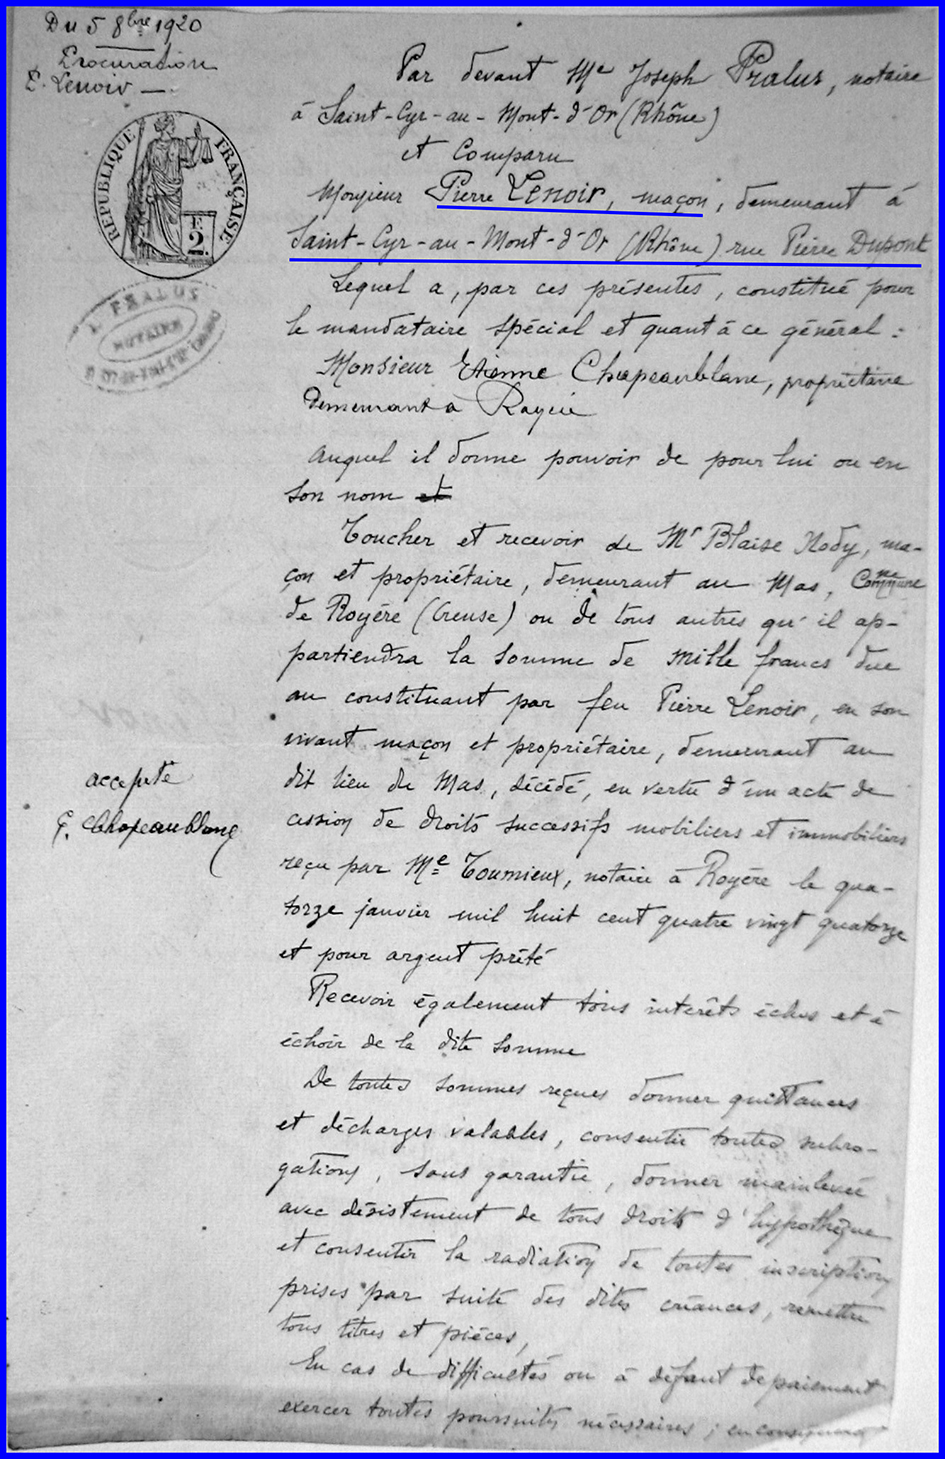 Du 5 8bre 1920
Procuration
P. Lenoir
RÉPUBLIQUE FRANÇAISE
2
PRALUS
NOTAIRE
Par devant Me Joseph Pralus, notaire
à Saint-Cyr-au-Mont-d'Or (Rhône)
et Comparu
Monsieur Pierre Lenoir, maçon, demeurant à
Saint-Cyr-au-Mont-d'Or (Rhône) rue Pierre Dupont
Lequel a, par ces présentes, constitué pour
le mandataire spécial et quant à ce général :
Monsieur Etienne Chapeaublanc, propriétaire
demeurant à Royère
Auquel il donne pouvoir de pour lui ou en
son nom et
Toucher et recevoir de Mr Blaise Nody, ma-
çon et propriétaire, demeurant au Mas, Commune
de Royère (Creuse) ou de tous autres qu'il ap-
partiendra la somme de mille francs due
au constituant par feu Pierre Lenoir, en son
vivant maçon et propriétaire, demeurant au
dit lieu de Mas, décédé, en vertu d'un acte de
cession de droits successifs mobiliers et immobiliers
reçu par Me Toumieux, notaire à Royère le qua-
torze janvier mil huit cent quatre vingt quatorze
et pour argent prêté
Recevoir également tous intérêts échus et à
échoir de la dite somme
De toutes sommes reçues donner quittances
et décharges valables, consentir toutes subro-
gations, sans garantie, donner mainlevée
avec désistement de tous droits d'hypothèque
et consentir la radiation de toutes inscriptions
prises par suite des dites créances, remettre
tous titres et pièces,
En cas de difficultés ou à défaut de paiement
exercer toutes poursuites nécessaires ; en
accepté
E. Chapeaublanc